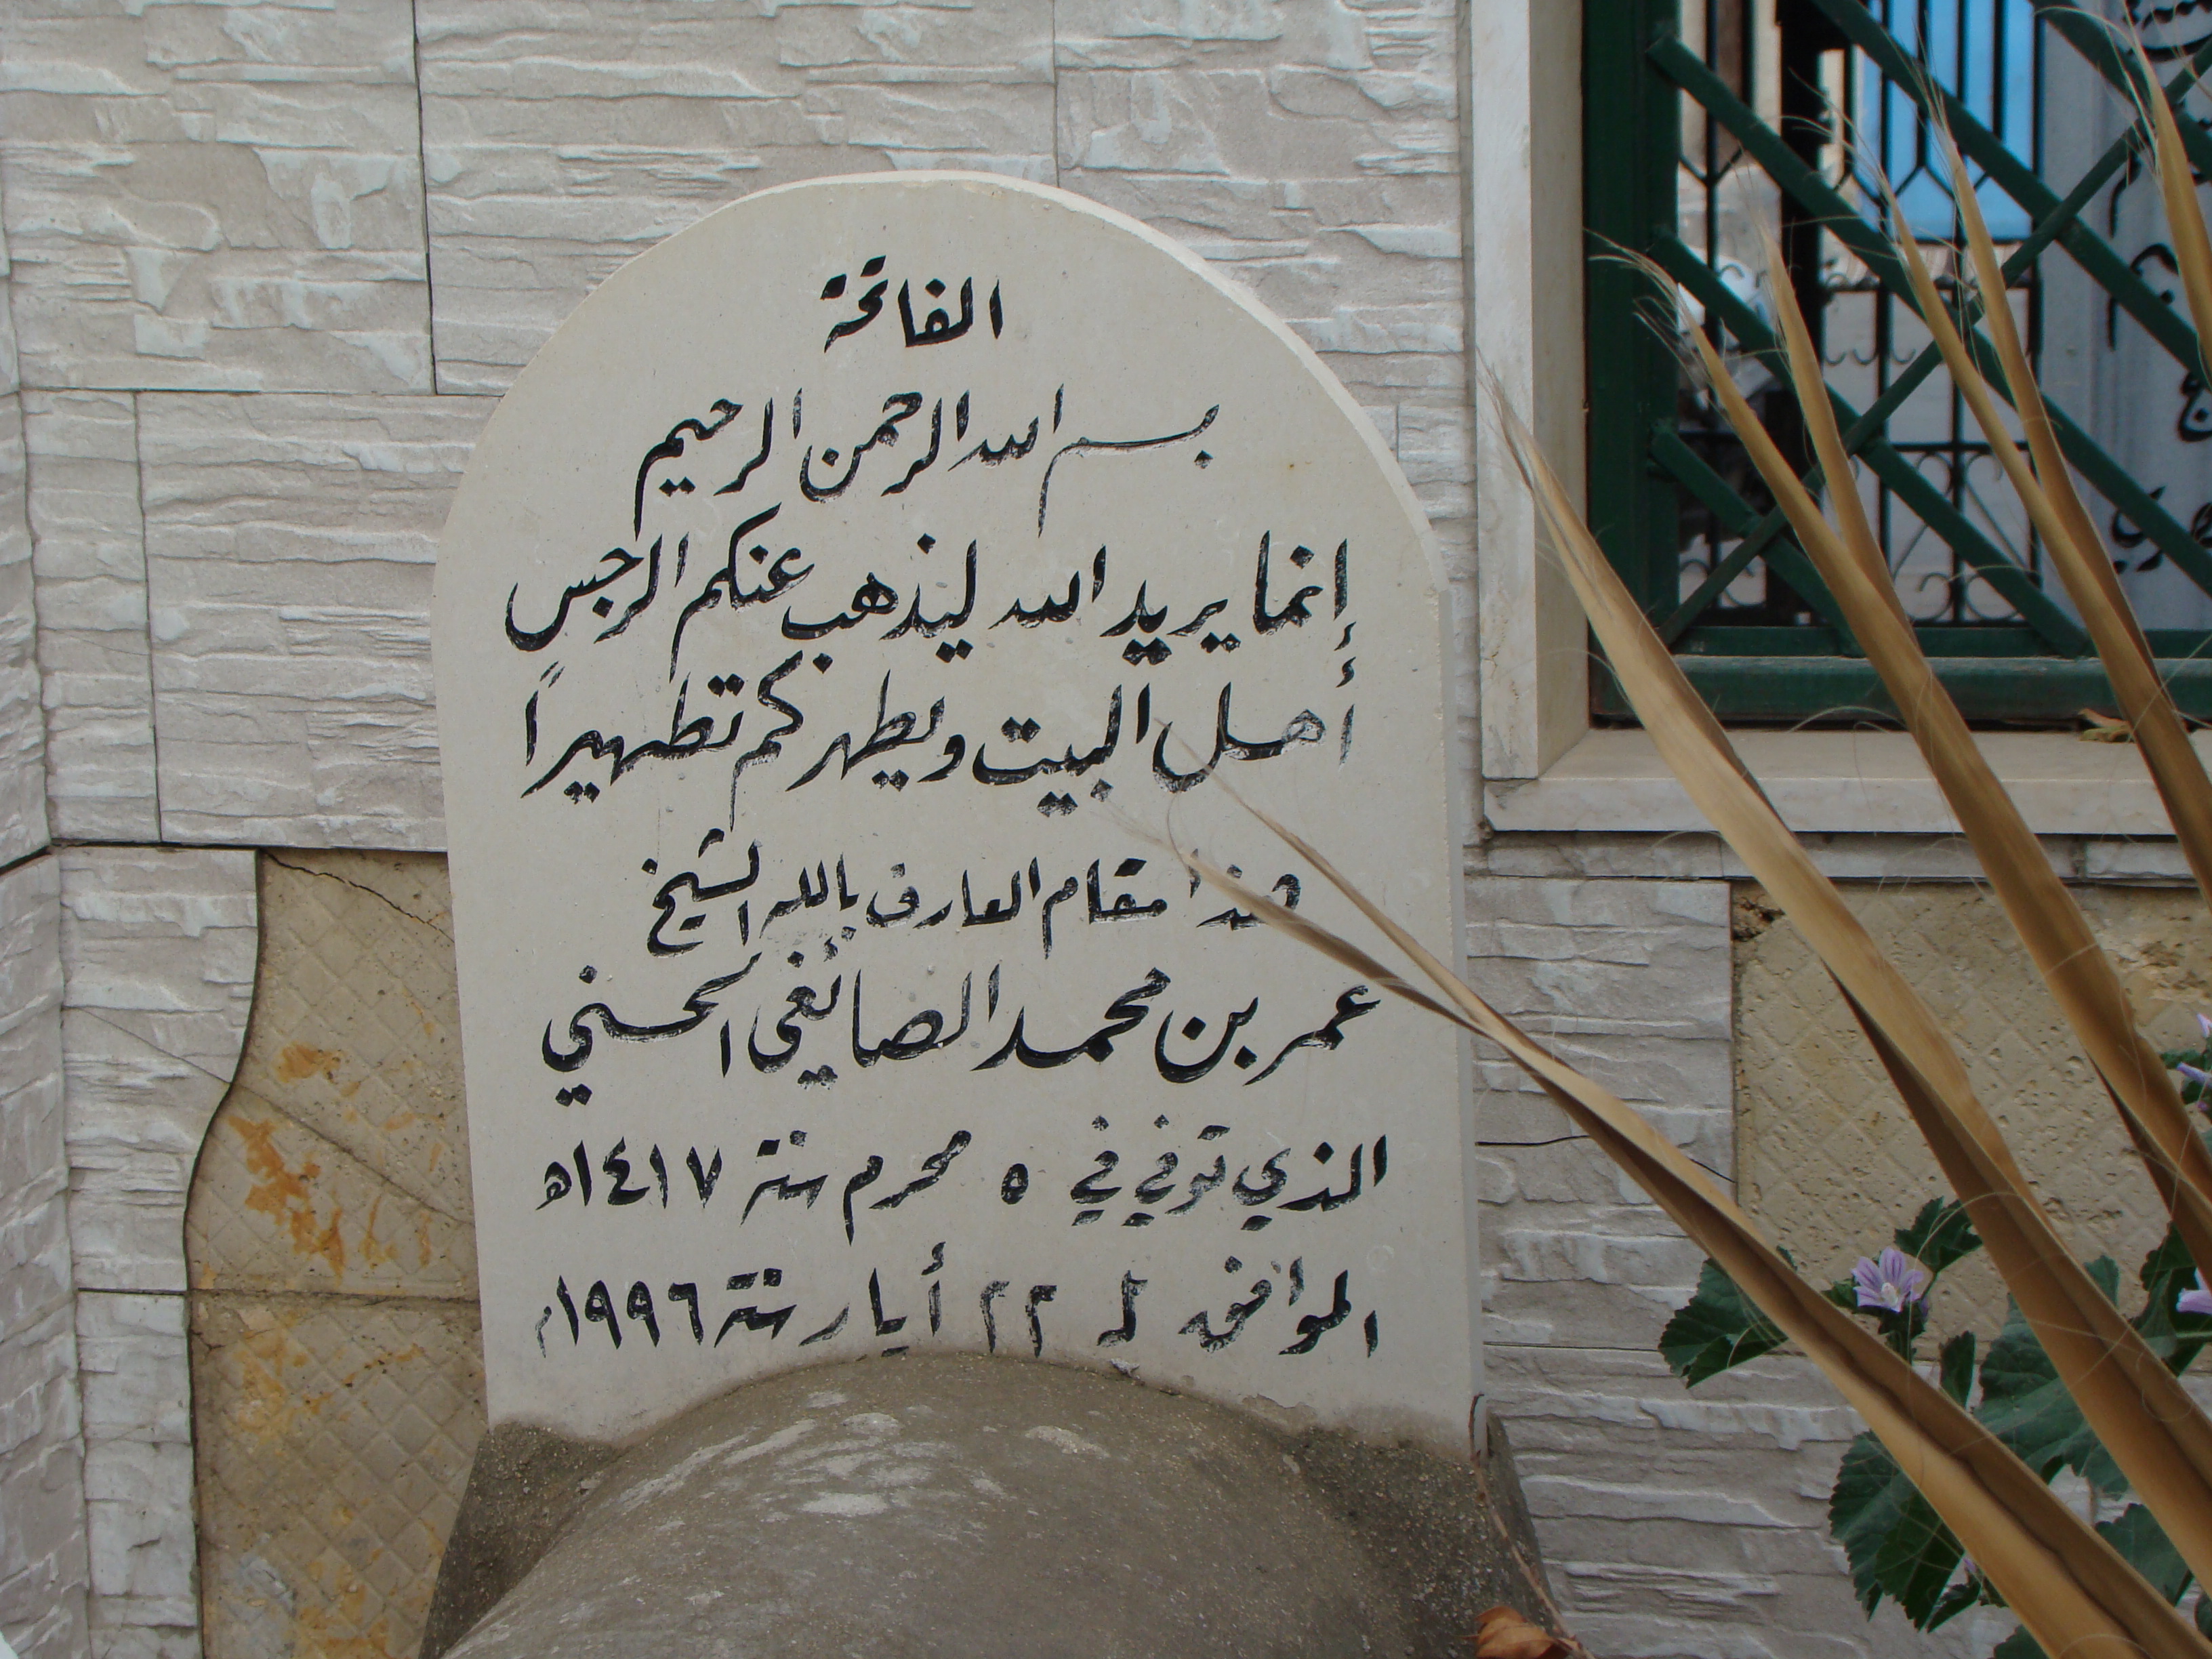 الفاتحة
بسم الله الرحمن الرحيم
إنما يريد الله ليذهب عنكم الرجس
أهل البيت ويطهركم تطهيراً
هذا مقام العارف بالله الشيخ
عمر بن محمد الصائغي الحسني
الذي توفي في ٥ محرم سنة ١٤١٧هـ
الموافق لـ ٢٢ أيار سنة ١٩٩٦م